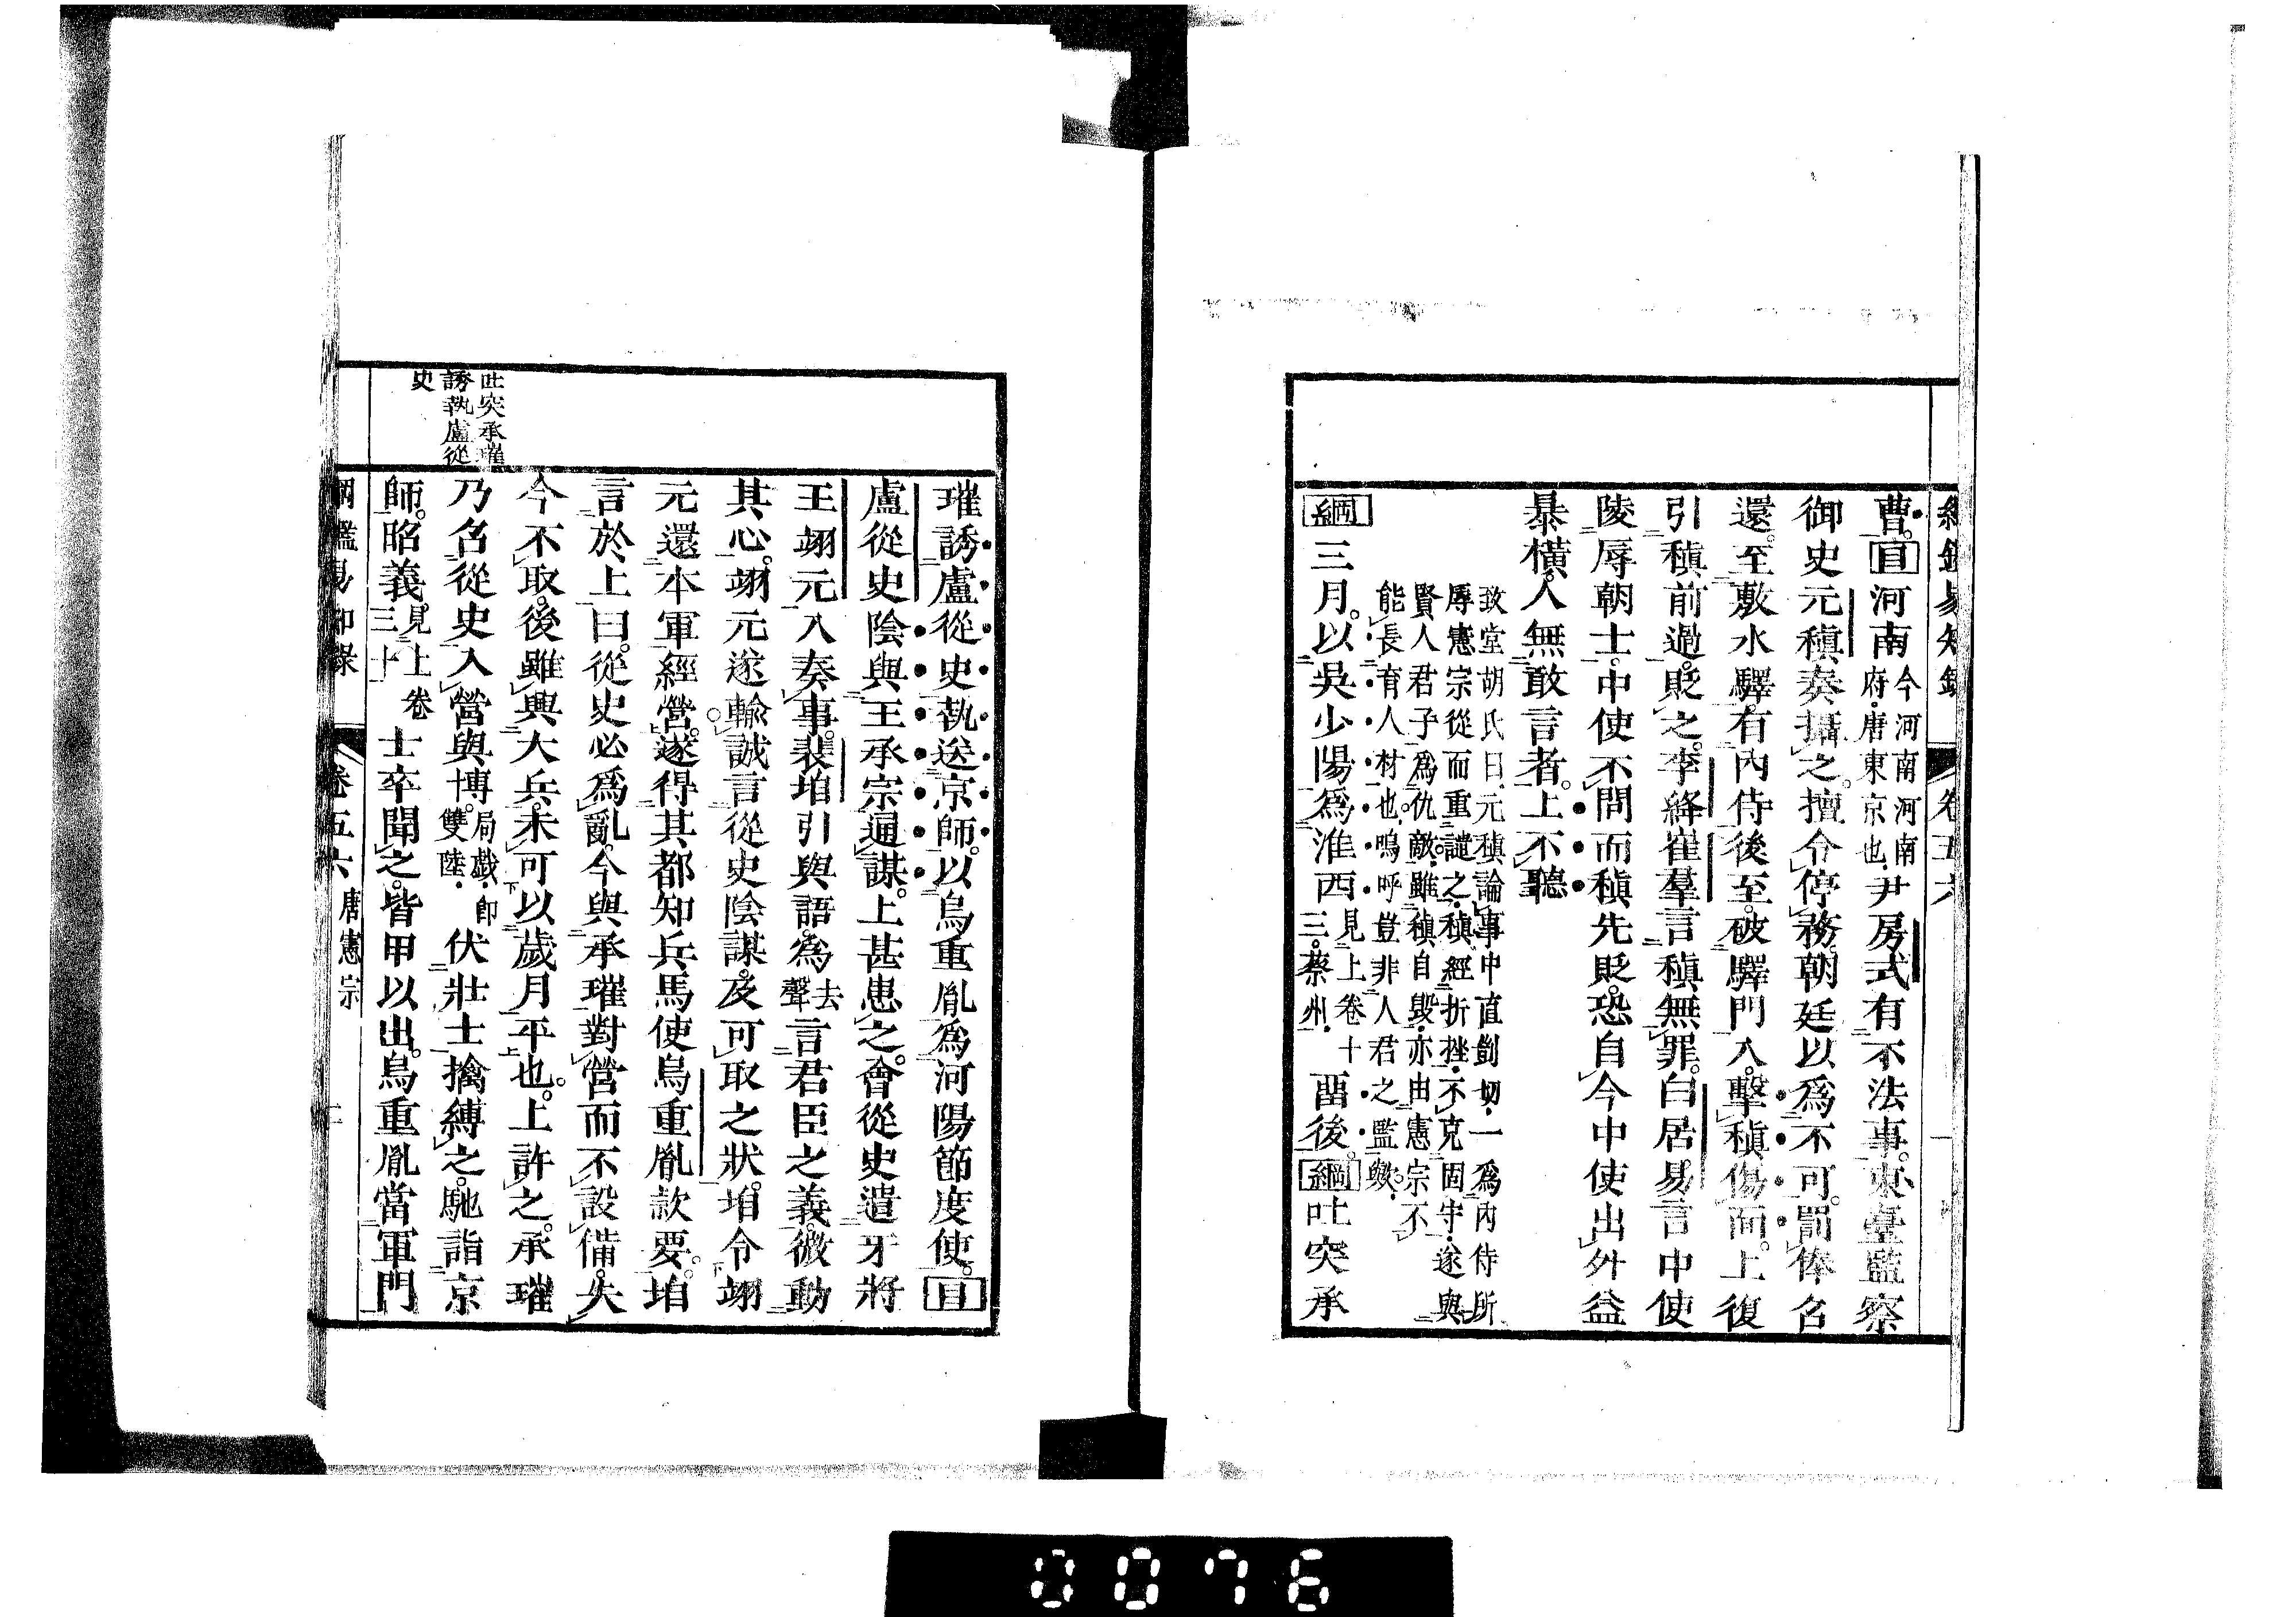 綱鑑易知錄 卷五六
曹。目河南今河南河南府。唐東京也。尹房式有不法事。東臺監察
御史元稹奏攝之。擅令停務。朝廷以為不可。罰俸召
還。至敷水驛。有內侍後至。破驛門入。擊稹傷面。上復
引稹前過。貶之。李絳崔羣言稹無罪。白居易言中使
陵辱朝士。中使不問而稹先貶。恐自今中使出外益
暴橫。人無敢言者。上不聽
致堂胡氏曰。元稹論事中直剴切。一為內侍所
辱。憲宗從而重譴之。稹經折挫。不克固守。遂與
賢人君子為仇敵。雖稹自毀。亦由憲宗不
能長育人材也。嗚呼豈非人君之監歟。
綱三月。以吳少陽為淮西見上卷十三。蔡州。畱後。綱吐突承
璀誘盧從史執送京師。以烏重胤為河陽節度使。目
盧從史陰與王承宗通謀。上甚患之。會從史遣牙將
王翊元入奏事。裴垍引與語。為去聲言君臣之義。微動
其心。翊元遂輸誠。言從史陰謀。及可取之狀。垍令翊
元還本軍經營。遂得其都知兵馬使烏重胤款要。垍
言於上曰。從史必為亂。今與承璀對營而不設備。失
今不取。後雖興大兵。未可以歲月平也。上許之。承璀
乃召從史入營與博局戲。卽雙陸。伏壯士擒縛之。馳詣京
師。昭義見上卷三十。士卒聞之。皆甲以出。烏重胤當軍門
吐突承璀
誘執盧從
史
綱鑑易知錄 卷五六 唐憲宗 二
0076